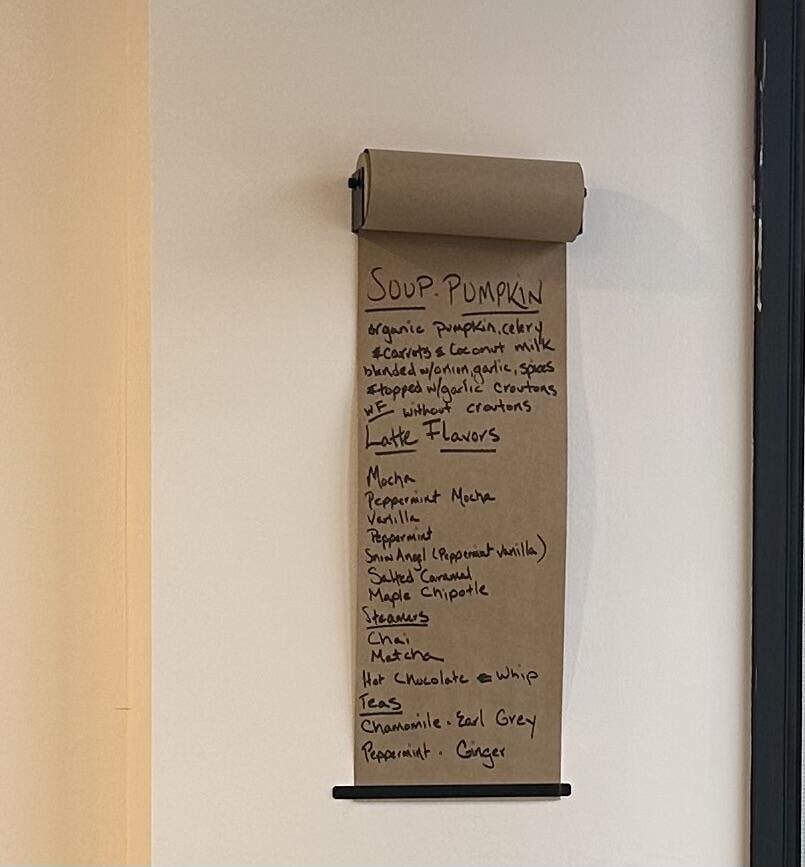 SOUP. PUMPKIN
organic pumpkin, celery
& carrots & Coconut milk
blended w/onion, garlic, spices
& topped w/garlic croutons
WF without croutons
Latte Flavors
Mocha
Peppermint Mocha
Vanilla
Peppermint
Snow Angel (Peppermint vanilla)
Salted Caramel
Maple Chipotle
Steamers
Chai
Matcha
Hot Chocolate Whip
Teas
Chamomile. Earl Grey
Peppermint. Ginger